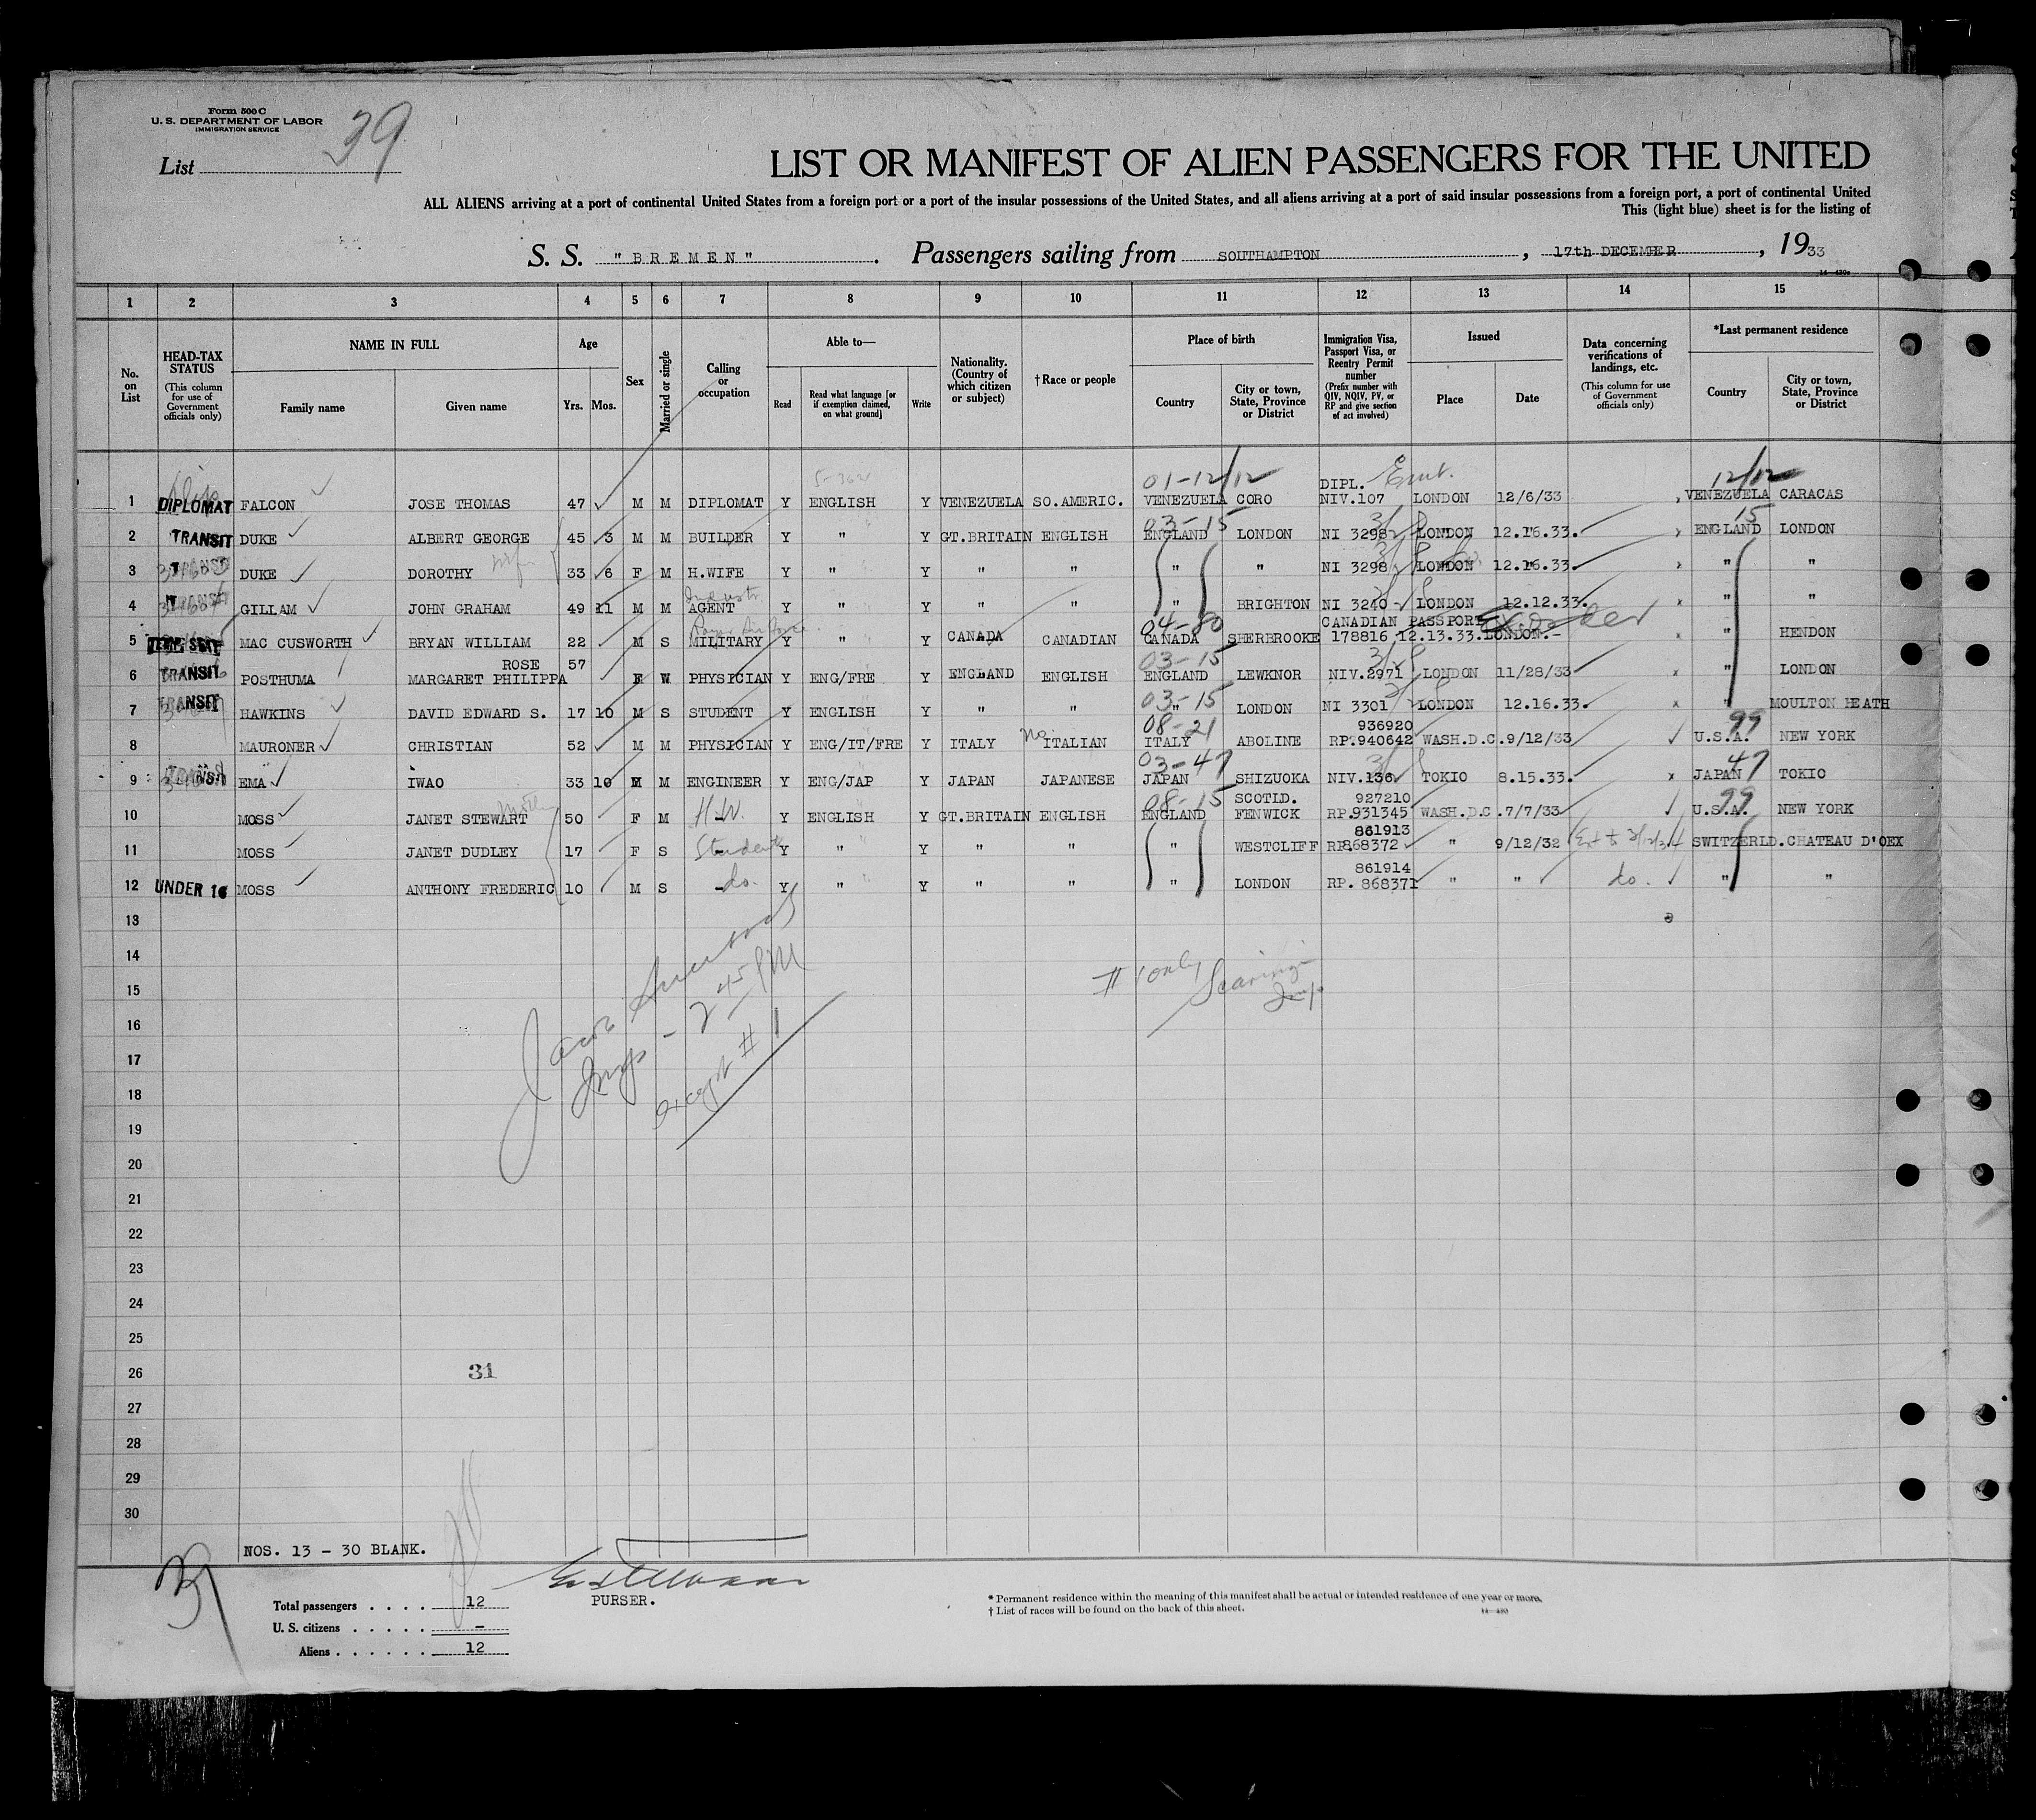 Form 500 C
U. S. DEPARTMENT OF LABOR
IMMIGRATION SERVICE
List 39
LIST OR MANIFEST OF ALIEN PASSENGERS FOR THE UNITED
ALL ALIENS arriving at a port of continental United States from a foreign port or a port of the insular possessions of the United States, and all aliens arriving at a port of said insular possessions from a foreign port, a port of continental United
This (light blue) sheet is for the listing of
S. S. "BREMEN". Passengers sailing from SOUTHAMPTON, 17th DECEMBER, 1933
1 2 3 4 5 6 7 8 9 10 11 12 13 14 15
No. on List
HEAD-TAX STATUS (This column for use of Government officials only)
NAME IN FULL Family name Given name
Age Yrs. Mos.
Sex
Married or single
Calling or occupation
Able to— Read Read what language [or if exemption claimed, on what ground] Write
Nationality. (Country of which citizen or subject)
† Race or people
Place of birth Country City or town, State, Province or District
Immigration Visa, Passport Visa, or Reentry Permit number (Prefix number with QIV, NQIV, PV, or RP and give section of act involved)
Issued Place Date
Data concerning verifications of landings, etc. (This column for use of Government officials only)
*Last permanent residence Country City or town, State, Province or District
5-362 01-12/12 DIPL. 12/12
1 DIPLOMAT FALCON JOSE THOMAS 47 M M DIPLOMAT Y ENGLISH Y VENEZUELA SO.AMERIC. VENEZUELA CORO NIV.107 LONDON 12/6/33 VENEZUELA CARACAS
03-15 15
2 TRANSIT DUKE ALBERT GEORGE 45 3 M M BUILDER Y " Y GT.BRITAIN ENGLISH ENGLAND LONDON NI 3298 LONDON 12.16.33. ENGLAND LONDON
3 TRANSIT DUKE DOROTHY wife 33 6 F M H.WIFE Y " Y " " " " NI 3298 LONDON 12.16.33. " "
4 TRANSIT GILLAM JOHN GRAHAM 49 11 M M AGENT Y " Y " " " BRIGHTON NI 3240 LONDON 12.12.33. " "
04-80 CANADIAN PASSPORT
5 MAC CUSWORTH BRYAN WILLIAM 22 M S MILITARY Y " Y CANADA CANADIAN CANADA SHERBROOKE 178816 12.13.33.LONDON.- " HENDON
ROSE 57 03-15
6 TRANSIT POSTHUMA MARGARET PHILIPPA F W PHYSICIAN Y ENG/FRE Y ENGLAND ENGLISH ENGLAND LEWKNOR NIV.2971 LONDON 11/28/33 " LONDON
03-15
7 TRANSIT HAWKINS DAVID EDWARD S. 17 10 M S STUDENT Y ENGLISH Y " " " LONDON NI 3301 LONDON 12.16.33. MOULTON HEATH
08-21 936920 99
8 MAURONER CHRISTIAN 52 M M PHYSICIAN Y ENG/IT/FRE Y ITALY No ITALIAN ITALY ABOLINE RP.940642 WASH.D.C.9/12/33 U.S.A. NEW YORK
03-47 47
9 TRANSIT EMA IWAO 33 10 M M ENGINEER Y ENG/JAP Y JAPAN JAPANESE JAPAN SHIZUOKA NIV.136 TOKIO 8.15.33. JAPAN TOKIO
08-15 SCOTLD. 927210 99
10 MOSS JANET STEWART 50 F M H.W. Y ENGLISH Y GT.BRITAIN ENGLISH ENGLAND FENWICK RP.931345 WASH.D.C.7/7/33 U.S.A. NEW YORK
861913
11 MOSS JANET DUDLEY 17 F S Student Y " Y " " " WESTCLIFF RP.868372 " 9/12/32 SWITZERLD. CHATEAU D'OEX
861914
12 UNDER 16 MOSS ANTHONY FREDERIC 10 M S do. Y " Y " " " LONDON RP. 868371 " " do. " "
13
14
15 # 1 only
16 Jacob
17 Insp - 2 45 PM
18 except # 1
19
20
21
22
23
24
25
26 31
27
28
29
30
NOS. 13 - 30 BLANK.
39
Total passengers . . . . 12
U. S. citizens . . . . . -
Aliens . . . . . . 12
PURSER.
* Permanent residence within the meaning of this manifest shall be actual or intended residence of one year or more.
† List of races will be found on the back of this sheet.